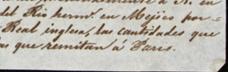 del Rio herm.º en Mejico por
Real inglesa, las cantidades que
as que remitan á Paris.